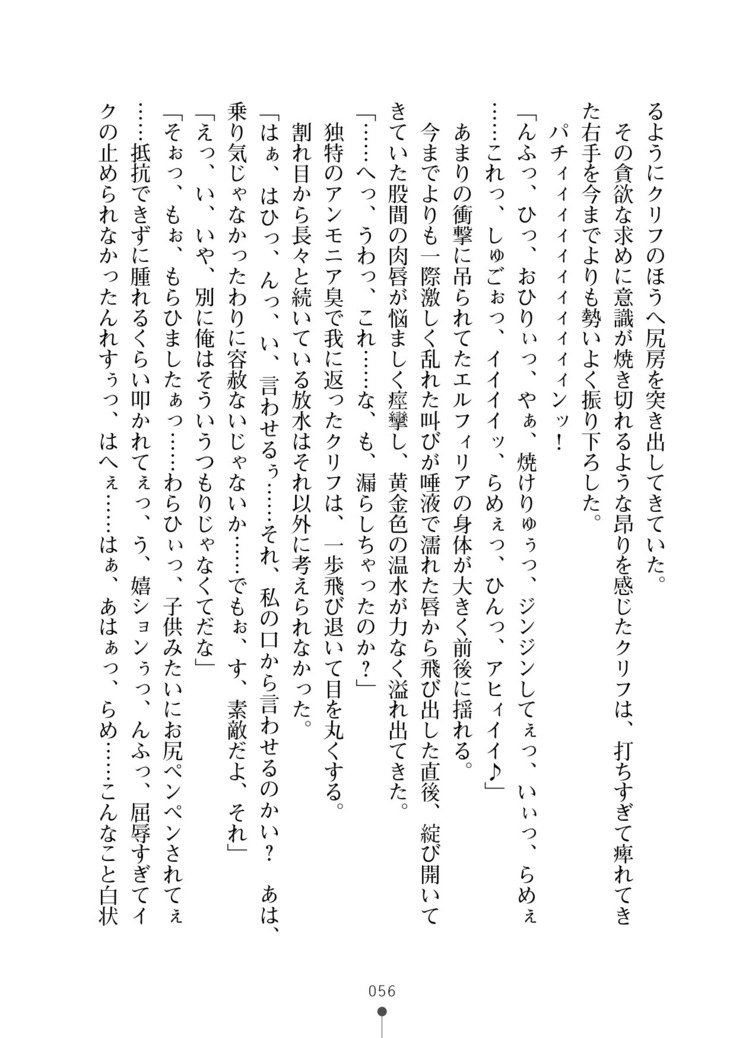 るようにクリフのほうへ尻房を突き出してきていた。
その貪欲な求めに意識が焼き切れるような昂りを感じたクリフは、打ちすぎて痺れてき
た右手を今までよりも勢いよく振り下ろした。
パチィィィィィィィィィィンッ！
「んふっ、ひっ、おひりぃっ、やぁ、焼けりゅぅっ、ジンジンしてぇっ、いぃっ、らめぇ
……これっ、しゅごぉっ、イイイイッ、らめぇっ、ひんっ、アヒィイイ♪」
あまりの衝撃に吊られてたエルフィリアの身体が大きく前後に揺れる。
今までよりも一際激しく乱れた叫びが唾液で濡れた唇から飛び出した直後、綻び開いて
きていた股間の肉唇が悩ましく痙攣し、黄金色の温水が力なく溢れ出てきた。
「……へっ、うわっ、これ……な、も、漏らしちゃったのか？」
独特のアンモニア臭で我に返ったクリフは、一歩飛び退いて目を丸くする。
割れ目から長々と続いている放水はそれ以外に考えられなかった。
「はぁ、はひっ、んっ、い、言わせるぅ……それ、私の口から言わせるのかい？　あは、
乗り気じゃなかったわりに容赦ないじゃないか……でもぉ、す、素敵だよ、それ」
「えっ、い、いや、別に俺はそういうつもりじゃなくてだな」
「そぉっ、もぉ、もらひましたぁっ……わらひぃっ、子供みたいにお尻ペンペンされてぇ
……抵抗できずに腫れるくらい叩かれてぇっ、う、嬉ションぅっ、んふっ、屈辱すぎてイ
クの止められなかったんれすぅっ、はへぇ……はぁ、あはぁっ、らめ……こんなこと白状
056